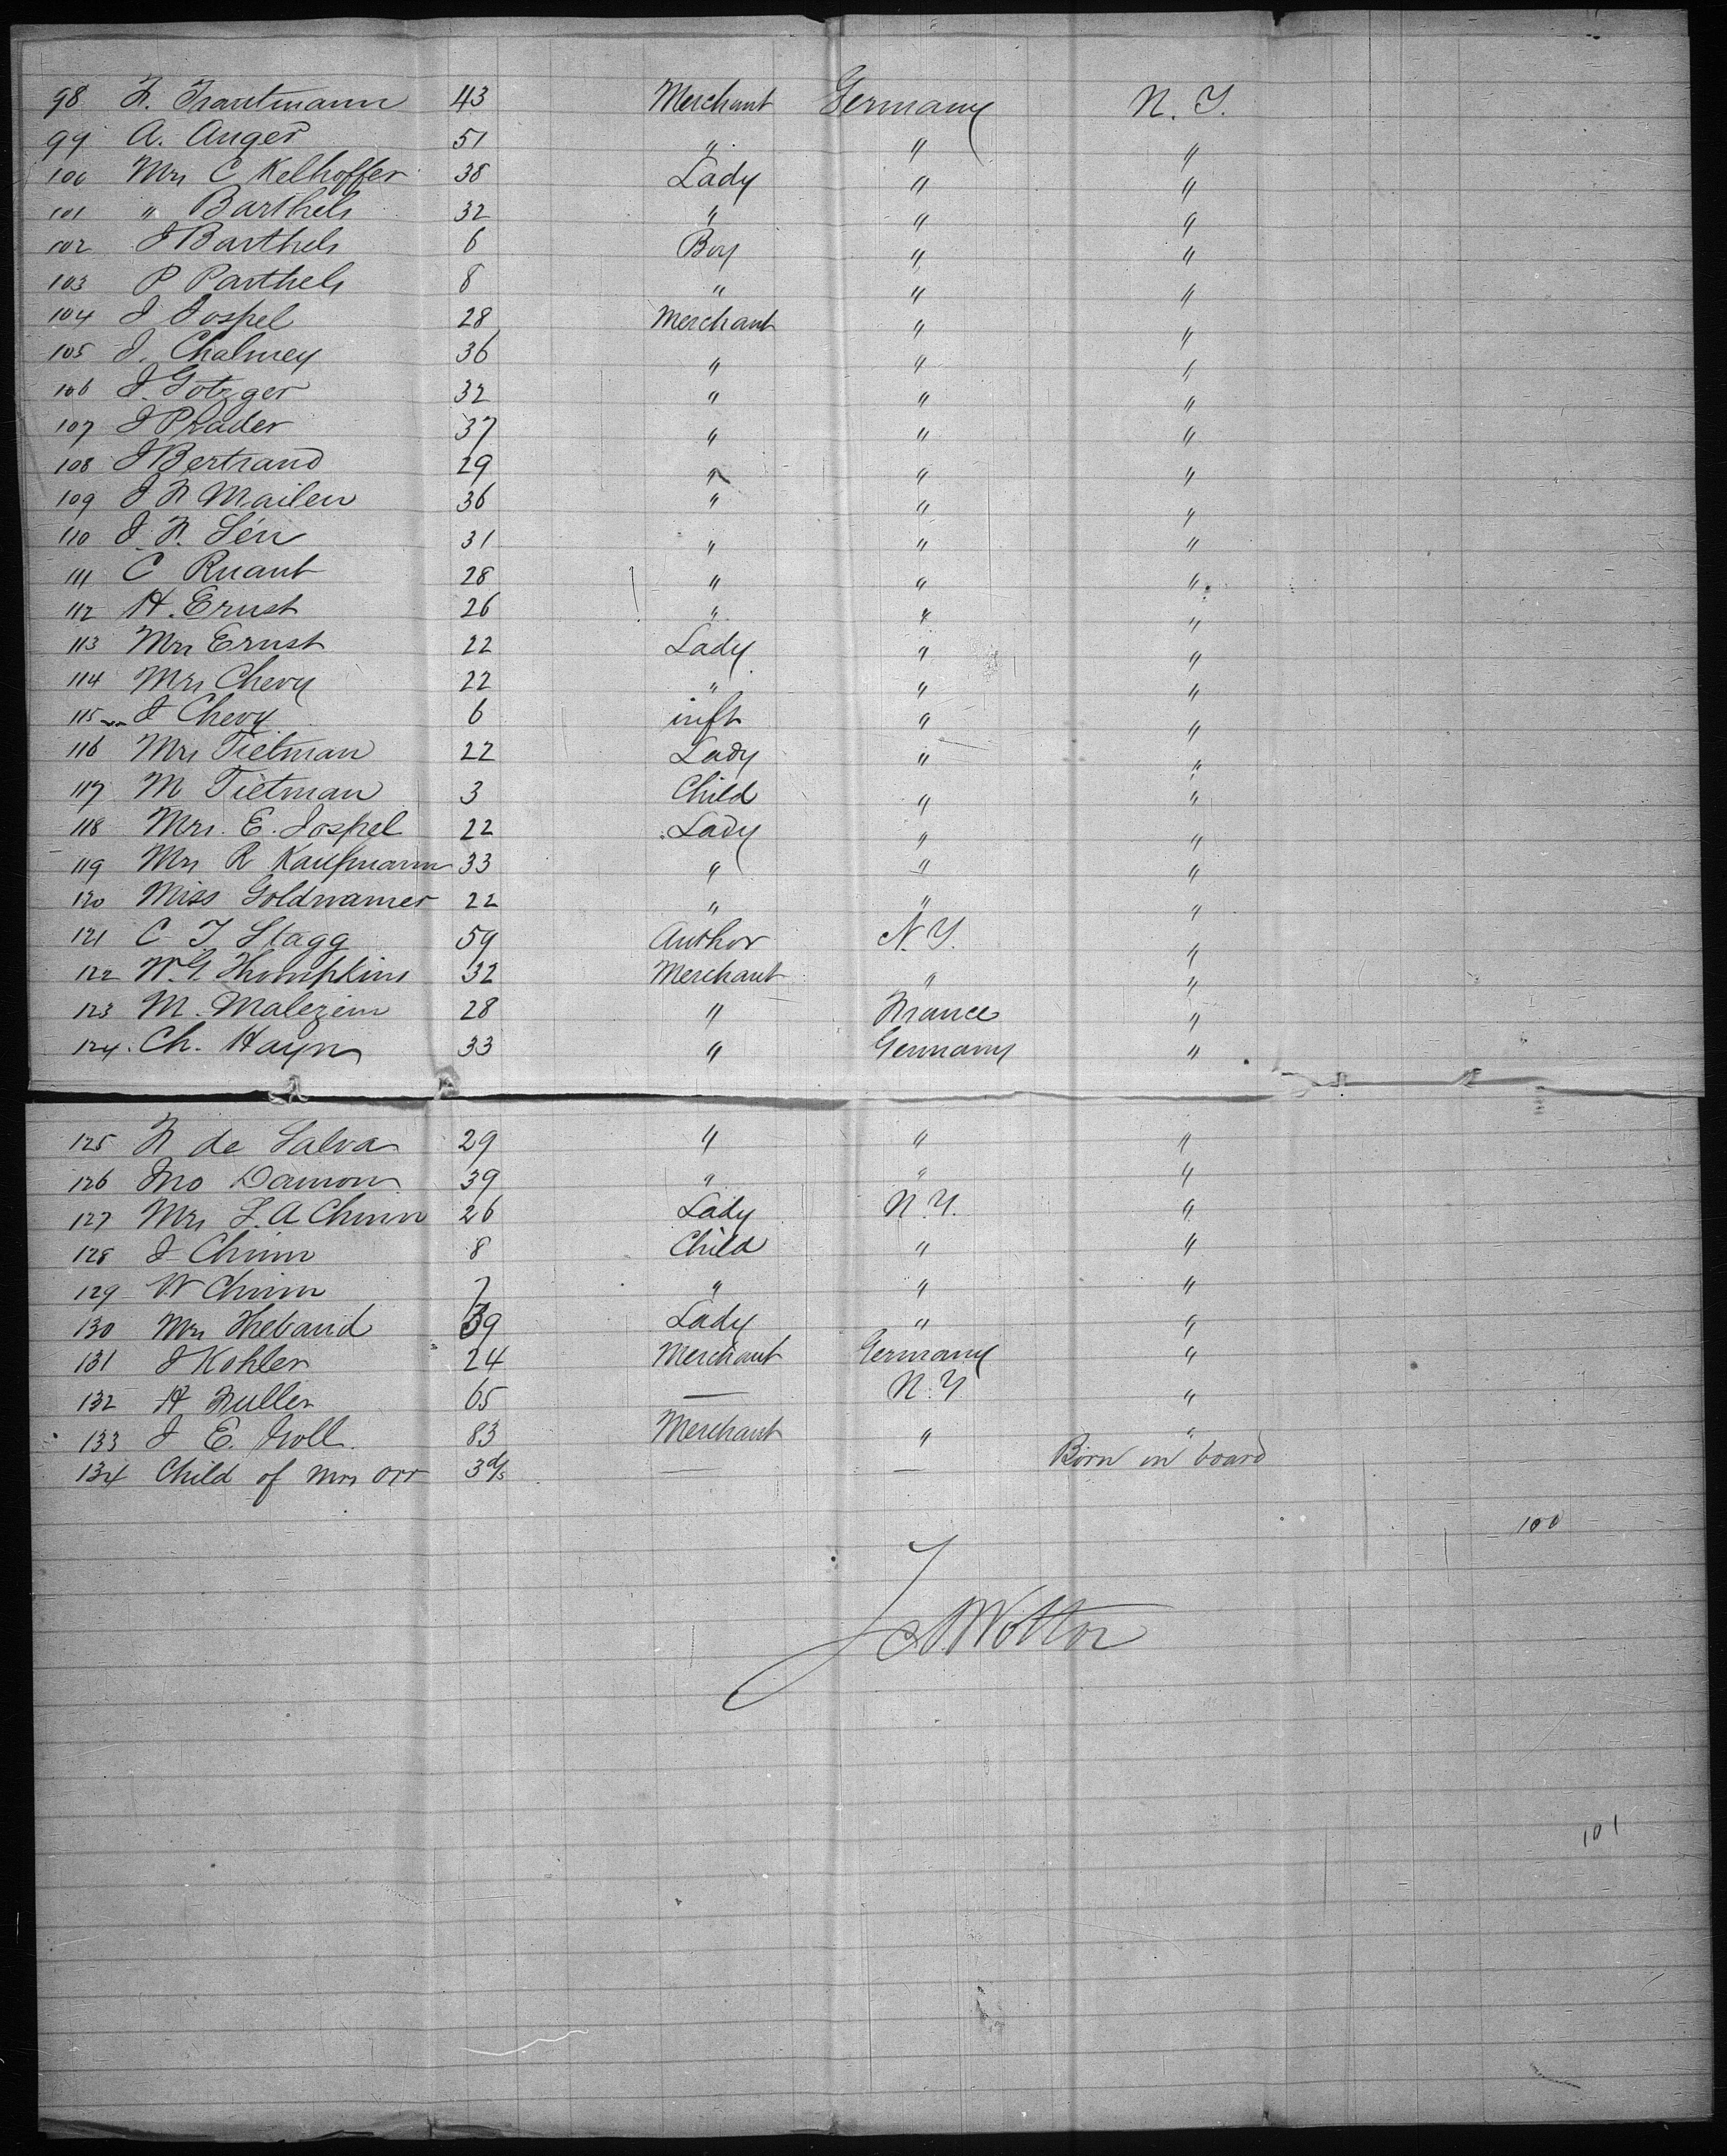 98 F. Trautmann 43 Merchant Germany N. Y.
99 A. Auger 51 " " "
100 Mrs C Kelhoffer 38 Lady " "
101 " Barthels 32 " " "
102 J Barthels 6 Boy " "
103 P Parthels 8 " " "
104 J Jospel 28 Merchant " "
105 J. Chalmey 36 " " "
106 J. Gotzger 32 " " "
107 J Prader 37 " " "
108 J Bertrand 29 " " "
109 J F Mailen 36 " " "
110 J. F. Sén 31 " " "
111 C Ruant 28 " " "
112 H. Ernst 26 " " "
113 Mrs Ernst 22 Lady " "
114 Mrs Chevy 22 " " "
115 J Chevy 6 inft " "
116 Mrs Tietman 22 Lady " "
117 M Tietman 3 Child " "
118 Mrs. E. Jospel 22 Lady " "
119 Mrs R Kaufmann 33 " " "
120 Miss Goldwamer 22 " " "
121 C T Stagg 59 Author N. Y. "
122 W. G. Thompkins 32 Merchant " "
123 M. Malezein 28 " France "
124. Ch. Hayn 33 " Germany "
125 F de Salva 29 " " "
126 Jno Damon 39 " " "
127 Mrs L. A Chinn 26 Lady N. Y. "
128 J Chinn 8 Child " "
129 W Chinn 7 " " "
130 Mrs Thebaud 39 Lady " "
131 J Kohler 24 Merchant Germany "
132 H Fuller 65 — N. Y "
133 J E. Noll 83 Merchant " "
134 Child of Mrs Orr 3 d/s — — Born on board
100
J A Wotton
101